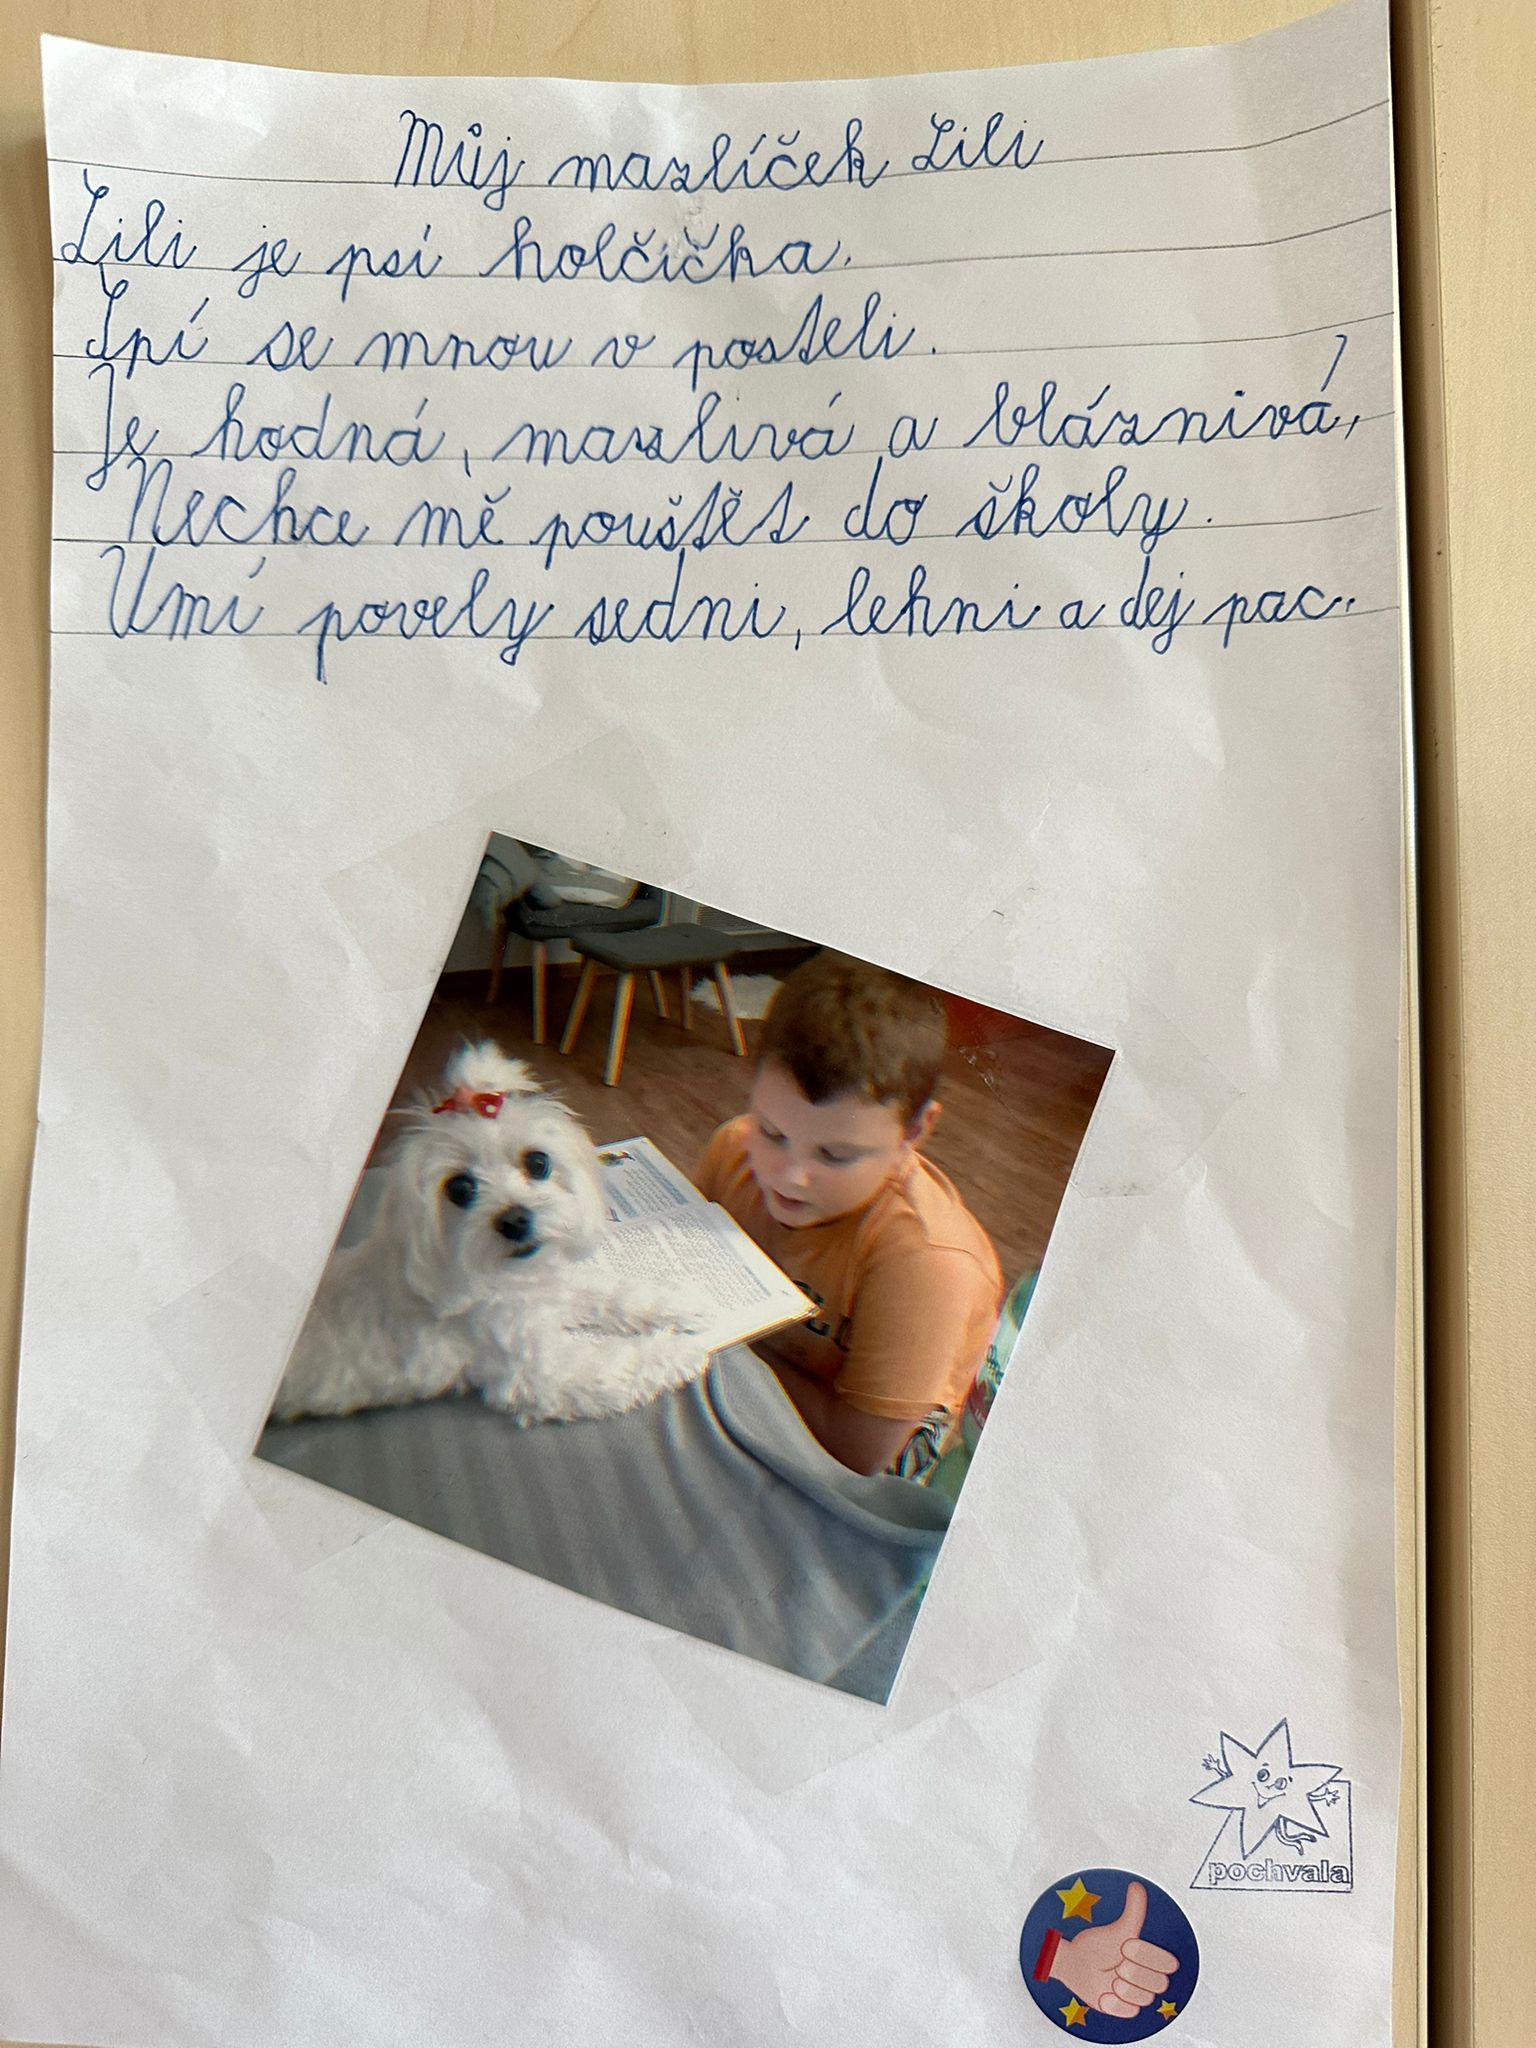 Můj mazlíček Lili
Lili je psí holčička.
Spí se mnou v posteli.
Je hodná, mazlivá a bláznivá,
Nechce mě pouštět do školy.
Umí povely sedni, lehni a dej pac..
pochvala